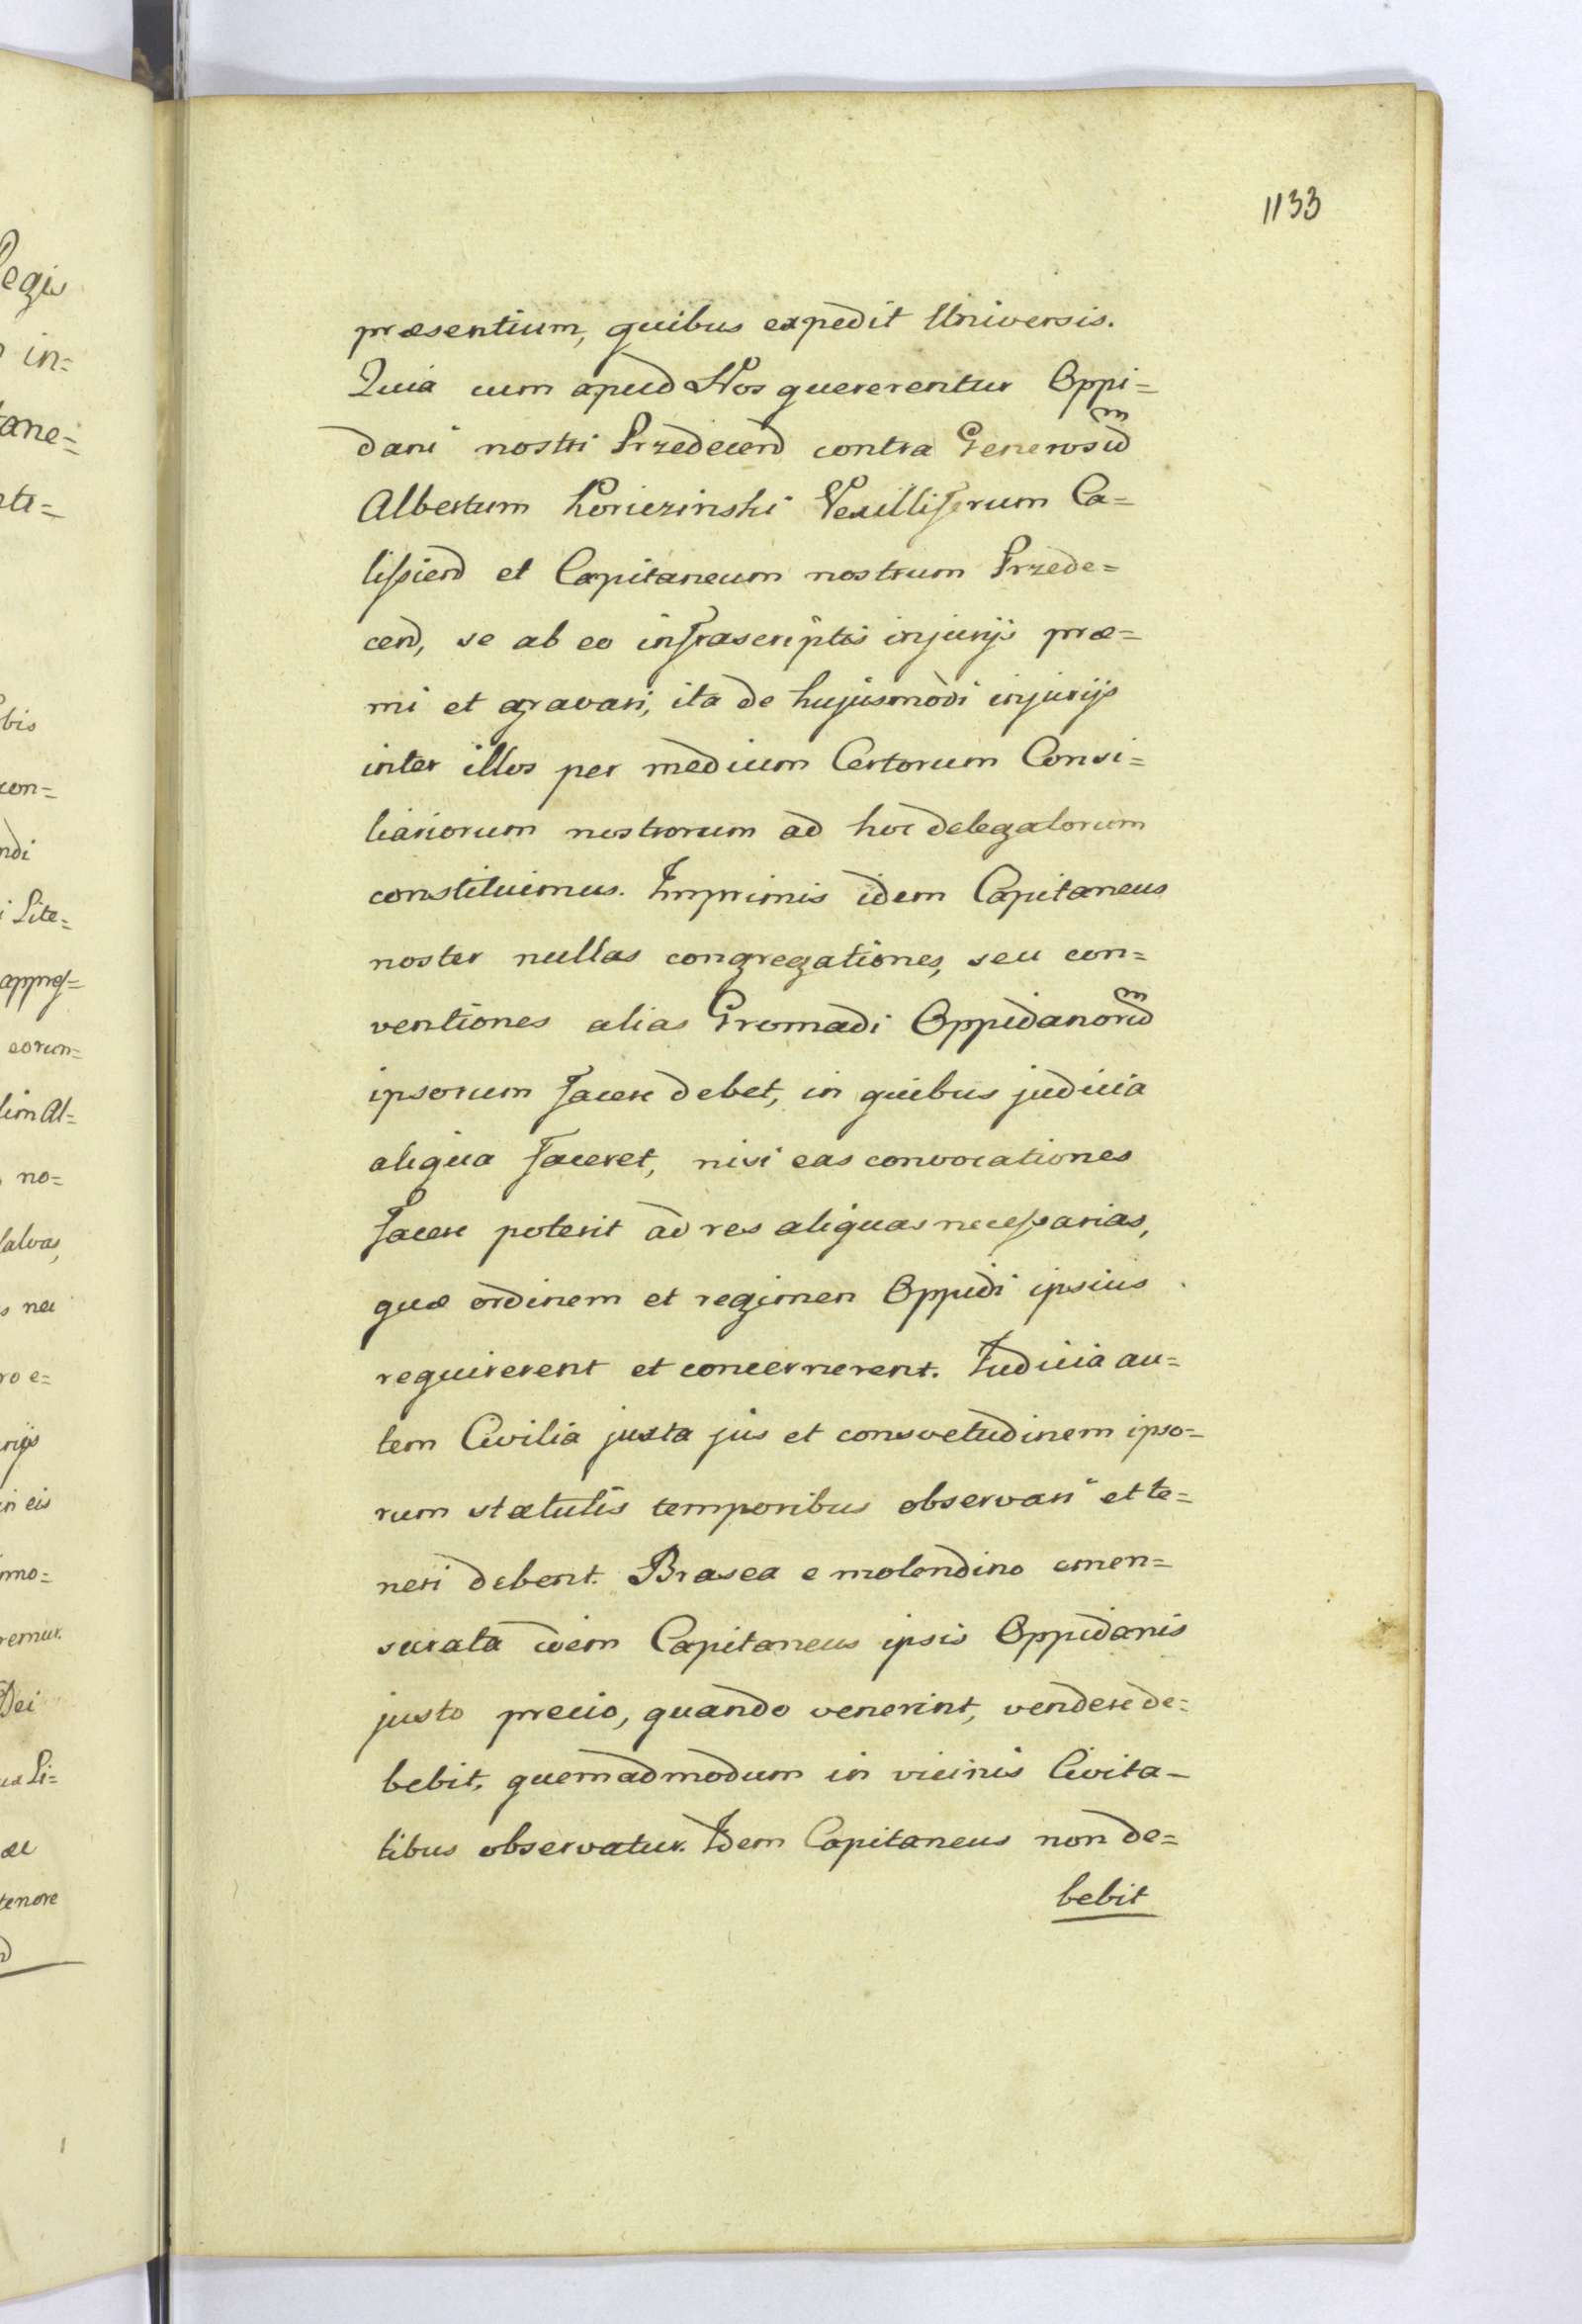 1133
præsentium, quibus expedit Universis.
Quia cum apud Nos quererentur Oppi=
dani nostri Przedecen̄ contra Generosum
Albertum Koriczinski Vexilliferum Ca=
lissien̄ et Capitaneum nostrum Przede=
cen̄, se ab eo infrascriptis injurijs præ=
mi et gravari, ita de hujusmodi injurijs
inter illos per medium Certorum Consi=
liariorum nostrorum ad hoc delegatorum
constituimus. Imprimis idem Capitaneus
noster nullas congregationes, seu con=
ventiones alias Gromadi Oppidanorum
ipsorum facere debet, in quibus judicia
aliqua faceret, nisi eas convocationes
facere poterit ad res aliquas necessarias,
quæ ordinem et regimen Oppidi ipsius
requirerent et concernerent. Judicia au=
tem Civilia juxta jus et consvetudinem ipso=
rum statutis temporibus observari et te=
neri debent. Brasea e molendino emen=
surata idem Capitaneus ipsis Oppidanis
justo precio, quando venerint, vendere de=
bebit, quemadmodum in vicinis Civita=
tibus observatur. Idem Capitaneus non de=
bebit
egis
in=
tane=
bis
con=
ndi
Lite=
eorun=
lim Al=
no=
salvas,
ro e=
in eis
mo=
remur.
Dei
Li=
tenore